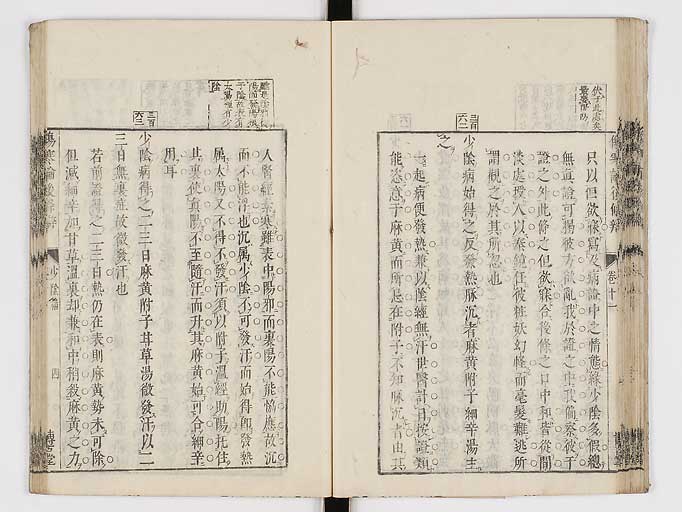 傷寒論後條辨
卷十一
只以但欲寐寫及病證中之情態緣少陰多假總
無真證可揭彼方欲亂我於證之中我偏察彼于
證之外此條之但欲寐合後條之口中和皆從閒
淡處埋人以奉鏡任彼粧妖幻怪而毫髮難逃所
謂觀之於其所忽也
少陰病始得之反發熱脉沉者麻黃附子細辛湯主
之
一起病便發熱兼以陰經無汗世醫計日按證類
能恣意于麻黃而所忌在附子不知脉沉者由其
三百
六二
人腎經素寒雖表中陽邪而裏陽不能協應故沉
而不能浮也沉属少陰不可發汗而始得卽發熱
属太陽又不得不發汗須以附子溫經助陽托住
其裏使真陽不至隨汗而升其麻黃始可合細辛
用耳
少陰病得之二三日麻黃附子甘草湯微發汗以二
三日無裏證故微發汗也
若前證得之二三日熱仍在表則麻黃勢未可除
但減細辛加甘草溫裏却兼和中稍殺麻黃之力
三百
六三
傷寒論後條辨
少陰篇
四